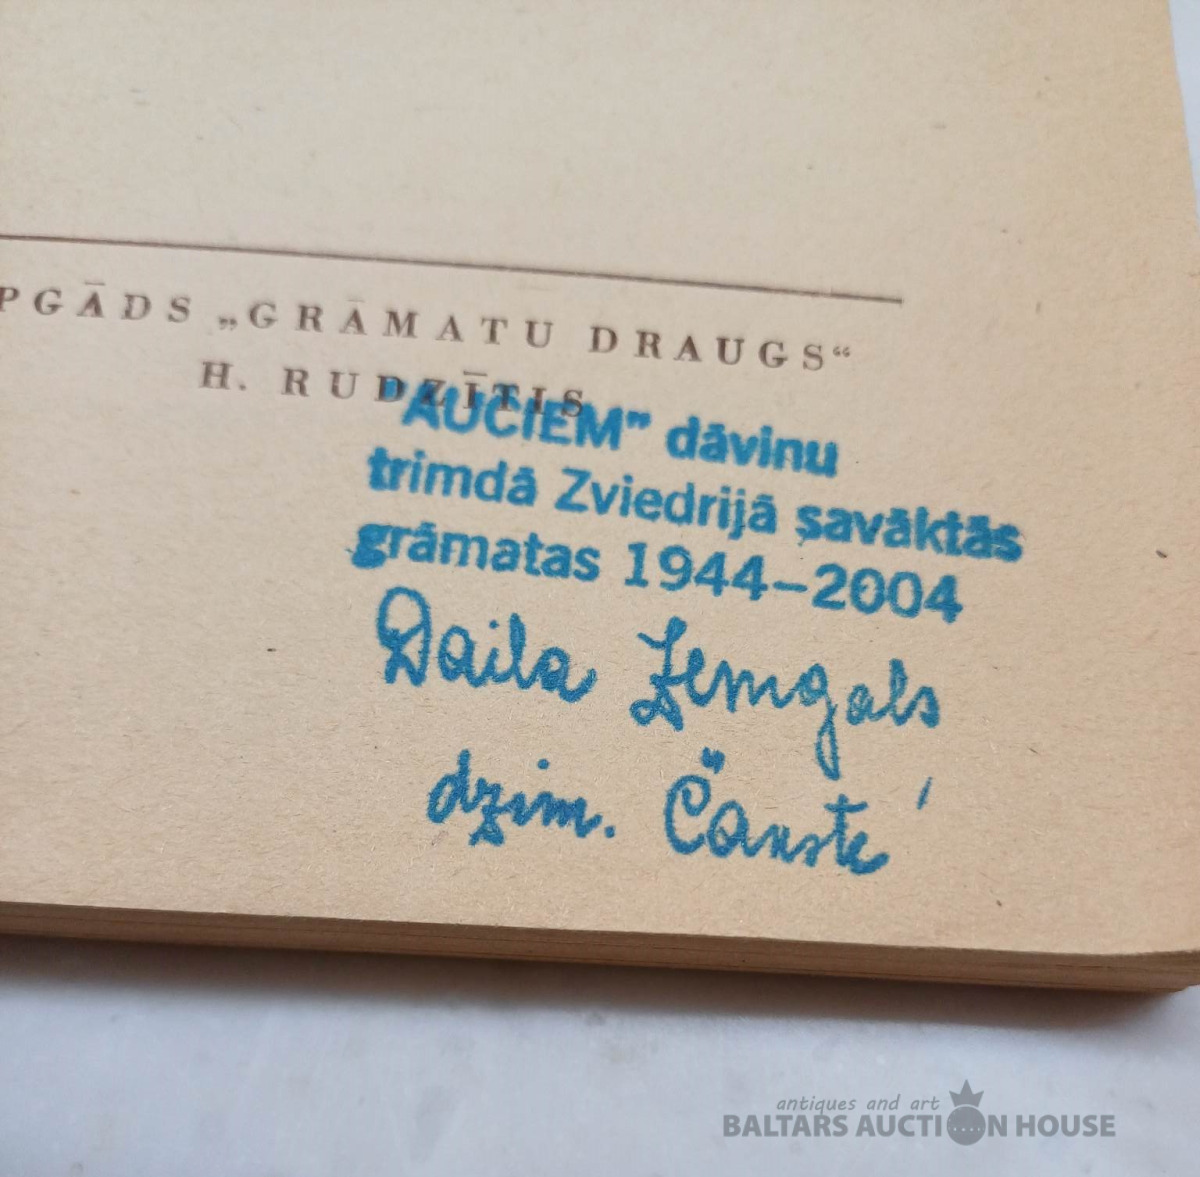 PGĀDS „GRĀMATU DRAUGS“
H. RUDZĪTIS
"AUČIEM" dāvinu
trimdā Zviedrijā savāktās
grāmatas 1944–2004
Daila Zemgals
dzim. Čakste
antiques and art
BALTARS AUCTION HOUSE